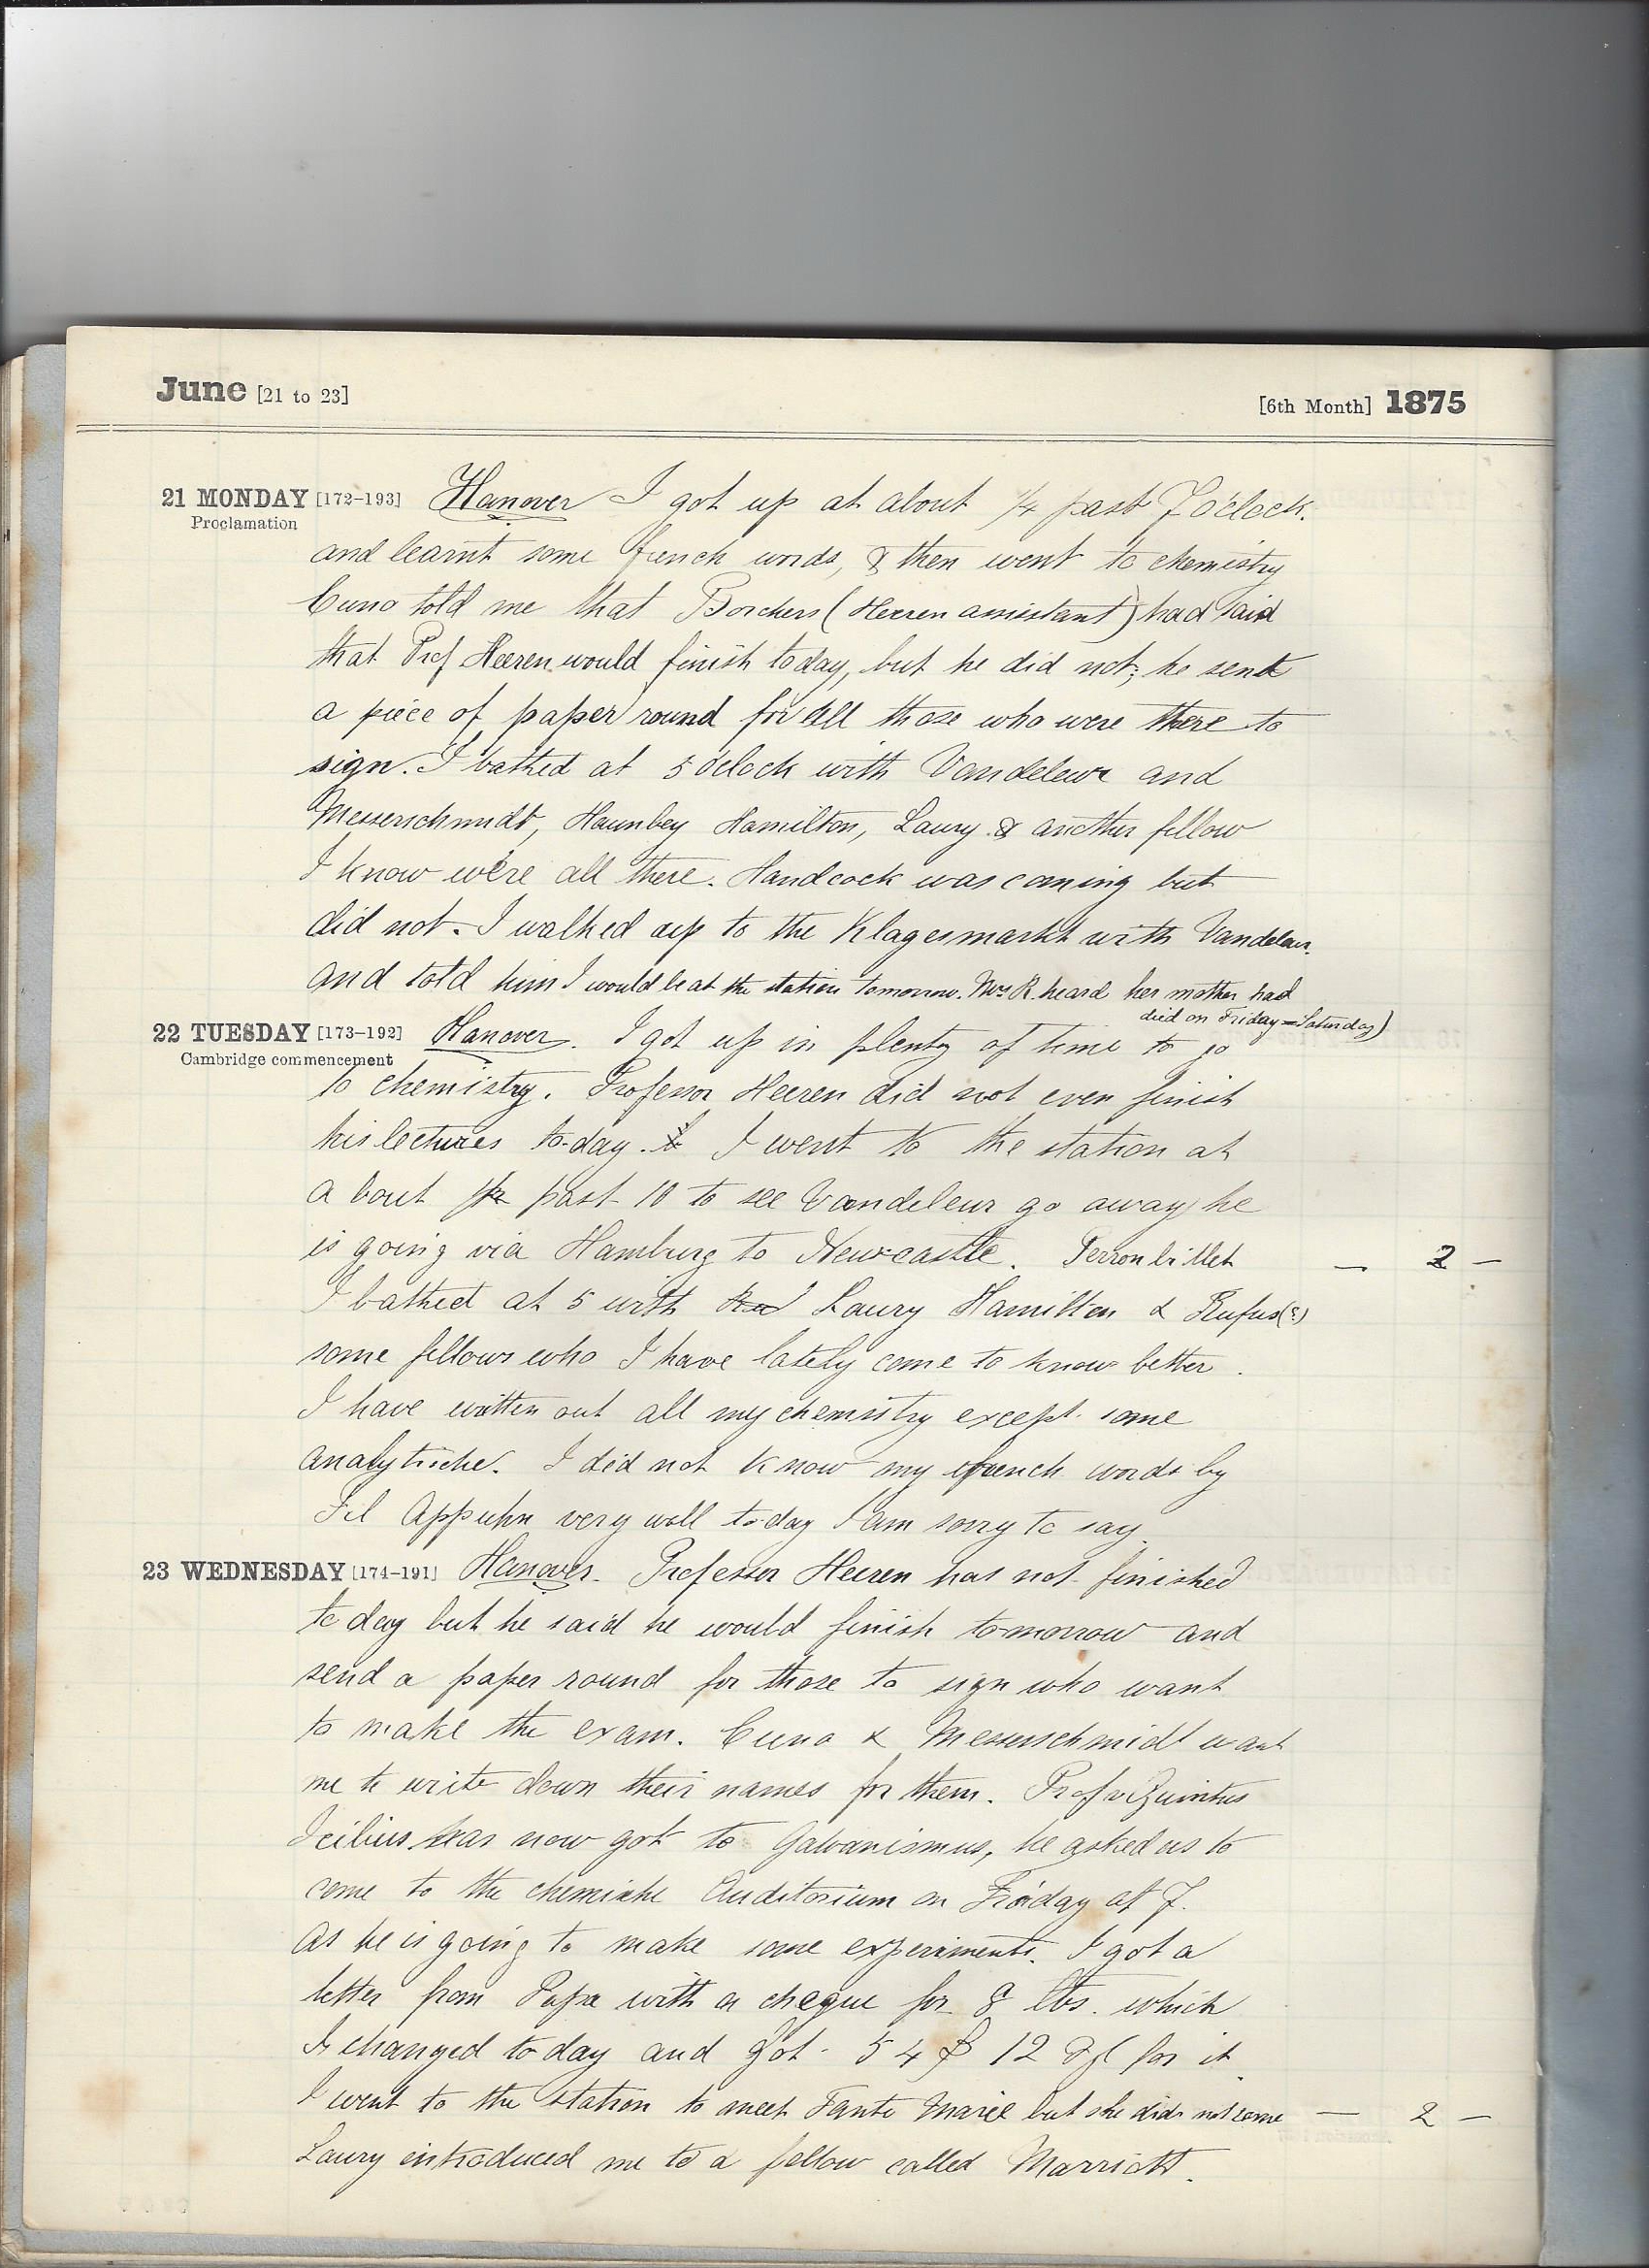 June [21 to 23] [6th Month] 1875
21 MONDAY [172-193] Hanover I got up at about 1/4 past 7 o'clock.
Proclamation
and learnt some french words, & then went to chemistry
Cuno told me that Borchers (Heeren assistant) had said
that Prof Heeren would finish today, but he did not; he sent
a piece of paper round for all those who were there to
sign. I bathed at 5 oclock with Vandeleur and
Messerschmidt, Hamilton, Laury & another fellow
I know were all there. Handcock was coming but
did not. I walked up to the Klagesmarkt with Vandeleur.
and told him I would be at the station tomorrow. Mrs R. heard her mother had
died on Friday = Saturday)
22 TUESDAY [173-192] Hanover. I got up in plenty of time to go
Cambridge commencement
to chemistry. Professor Heeren did not even finish
his lectures to-day. I went to the station at
about past 10 to see Vandeleur go away he
is going via Hamburg to Newcastle. Perronbillet — 2 —
I bathed at 5 with Laury Hamilton & Rufus(?)
some fellows who I have lately come to know better.
I have written out all my chemistry except some
analytische. I did not know my french words by
Frl Appuhn very well to-day I am sorry to say.
23 WEDNESDAY [174-191] Hanover. Professor Heeren has not finished
to day but he said he would finish to-morrow and
send a paper round for those to sign who want
to make the exam. Cuno & Messerschmidt want
me to write down their names for them. Prof v Quintus
Icilius has now got to Galvanismus, he asked us to
come to the chemische Auditorium on Friday at 7.
as he is going to make some experiments. I got a
letter from Papa with a cheque for 8 lbs. which
I changed to day and got 54 12 for it.
I went to the station to meet Tante Marie but she did not come — 2 —
Laury introduced me to a fellow called Marriott.